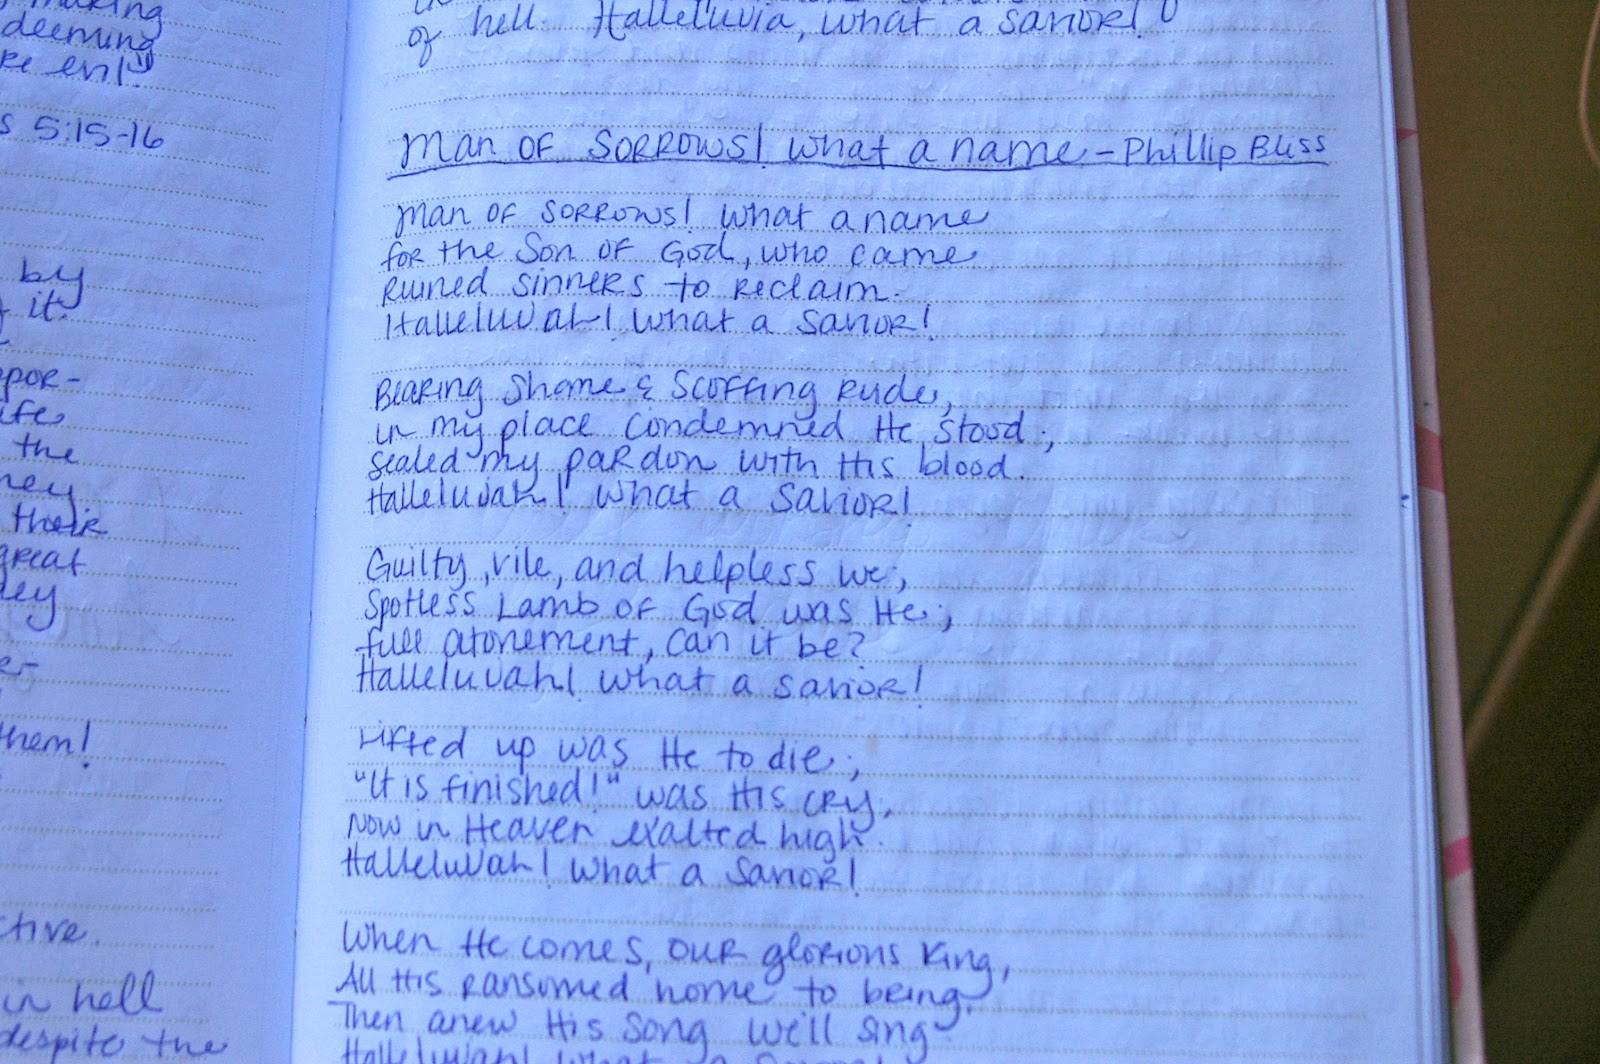 making
deeming
evil"
5:15-16
by
it.
the
their
great
them!
in hell
despite the
of hell. Halleluvia, what a savior!
Man of Sorrows! what a name - Phillip Bliss
Man of sorrows! what a name
for the Son of God, who came
Ruined sinners to reclaim.
Halleluvah! what a savior!
Bearing shame & scoffing rude,
in my place condemned He stood;
sealed my pardon with His blood.
Halleluvah! what a savior!
Guilty, vile, and helpless we;
Spotless Lamb of God was He;
full atonement, can it be?
Halleluvah! what a savior!
Lifted up was He to die;
"It is finished!" was His cry,
Now in Heaven exalted high.
Halleluvah! what a savior!
When He comes, our glorious King,
All His ransomed home to being.
Then anew His song we'll sing
Halleluvah! what a savior!